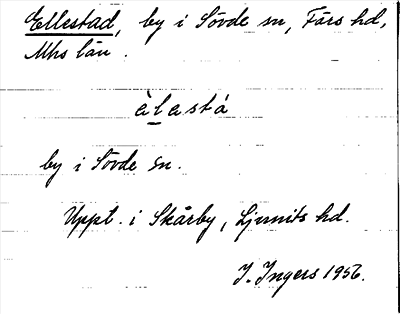 Ellestad, by i Sövde sn, Färs hd,
Mhs län.
àlastá
by i Sövde sn.
Uppt. i Skårby, Ljunits hd.
I. Ingers 1956.